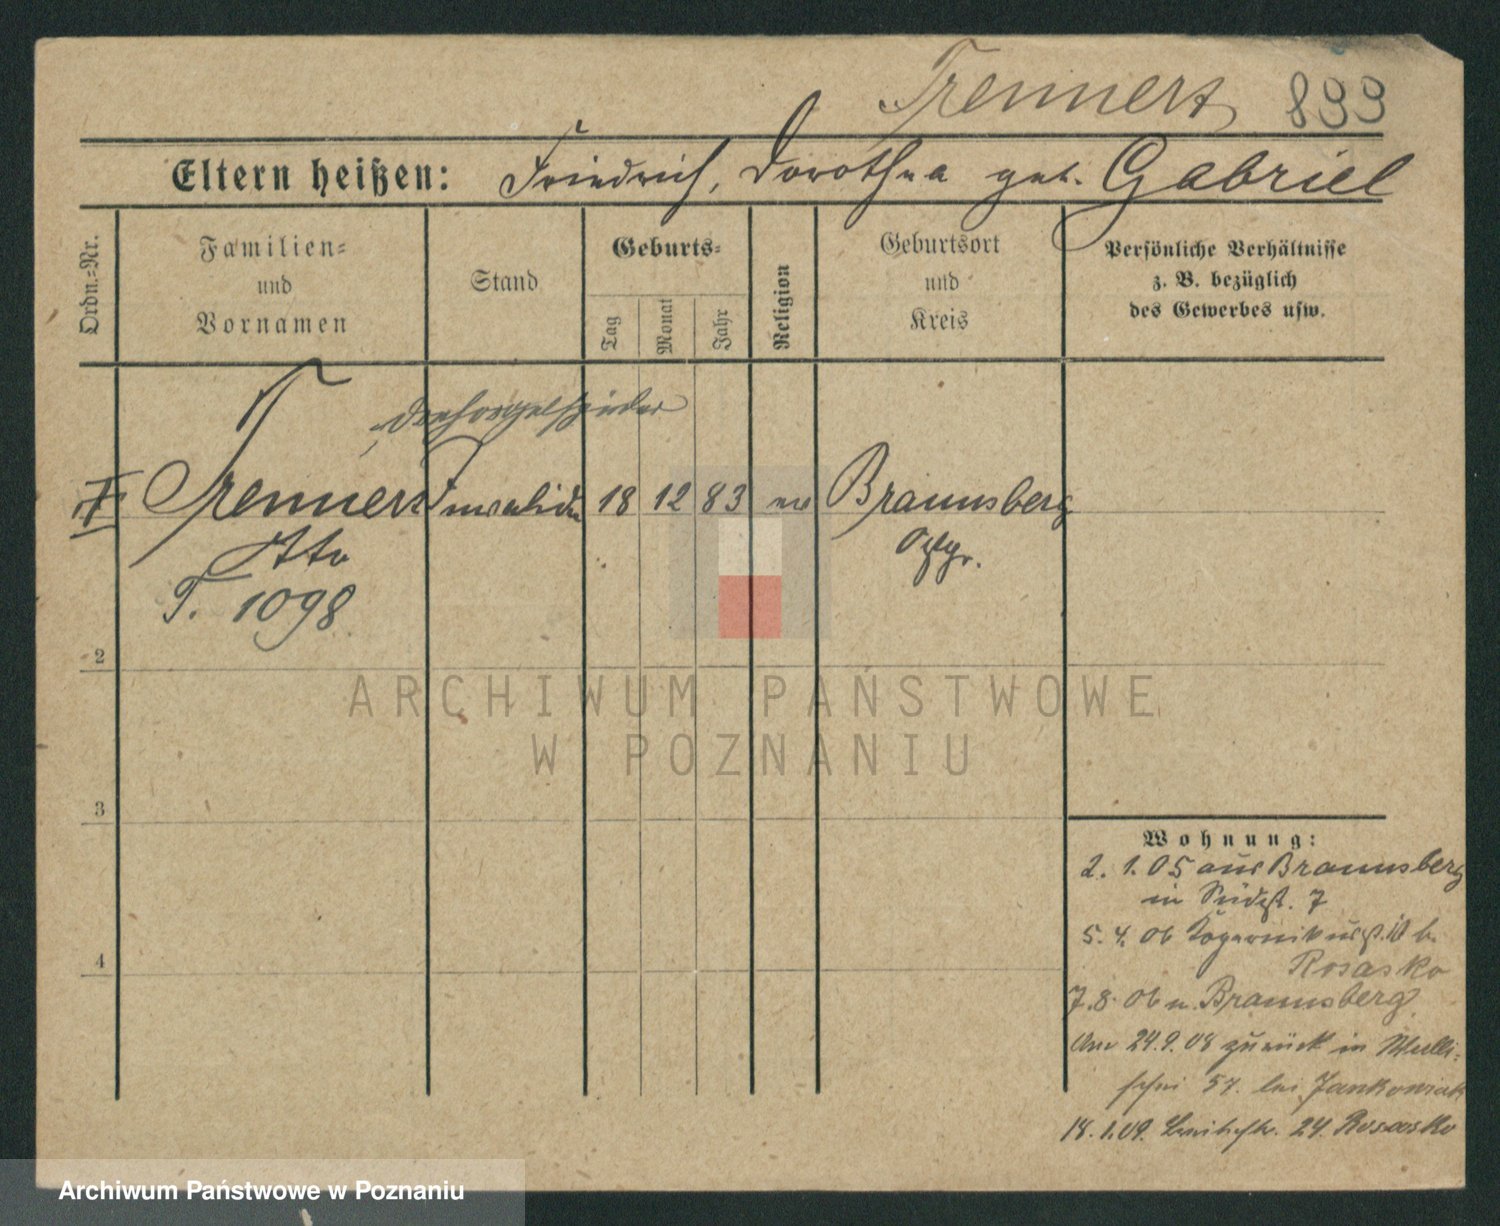 Trennert 899
Eltern heißen: Friedrich, Dorothea geb. Gabriel
Ordn.=Nr.
Familien=
und
Vornamen
Stand
Geburts=
Tag
Monat
Jahr
Religion
Geburtsort
und
Kreis
Persönliche Verhältnisse
z. B. bezüglich
des Gewerbes usw.
Drehorgelspieler
Trennert Invalide 18 12 83 ev Braunsberg
Otto Ostpr.
T. 1098
2
3
4
ARCHIWUM PAŃSTWOWE
W POZNANIU
Wohnung:
2. 1. 05 aus Braunsberg
in Südst. 7
5. 4. 06 b.
Rosasko
7. 8. 06 n. Braunsberg
24.9.08 zurück in Walli-
schei 57. bei Jankowiak
18.1.09. 24. Rosasko
Archiwum Państwowe w Poznaniu